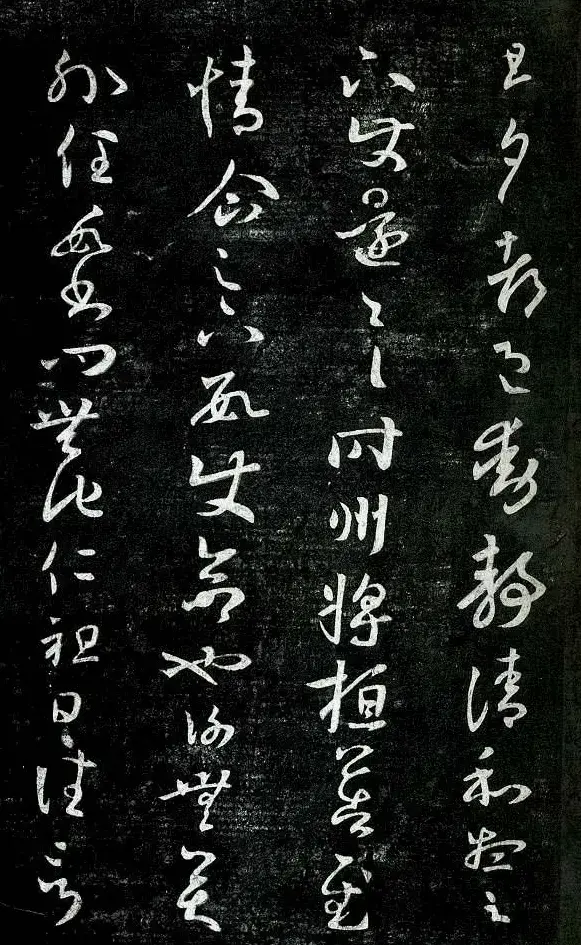 旦夕都邑動靜清和想足
下使還一一時州將桓公告慰
情企足下數使命也謝無奕
外任數書問無他仁祖日往言